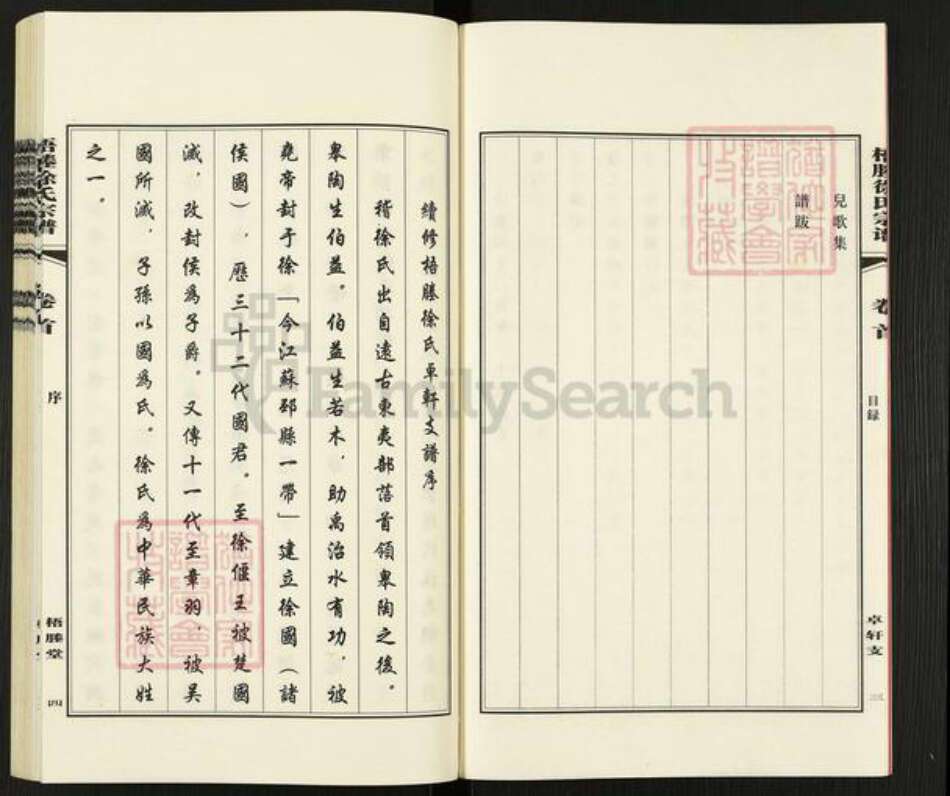 梧塍徐氏宗谱
卷首
目録
卓轩支
三
兒歌集
譜跋
續修梧塍徐氏卓軒支譜序
稽徐氏出自遠古東夷部落首領皋陶之後。
皋陶生伯益。伯益生若木，助禹治水有功，被
堯帝封于徐「今江蘇邳縣一帶」建立徐國（諸
侯國），歷三十二代國君。至徐偃王被楚國
滅，改封侯為子爵。又傳十一代至章羽，被吴
國所滅，子孫以國為氏。徐氏為中華民族大姓
之一。
梧塍徐氏宗譜
卷首
序
梧塍堂
四
FamilySearch